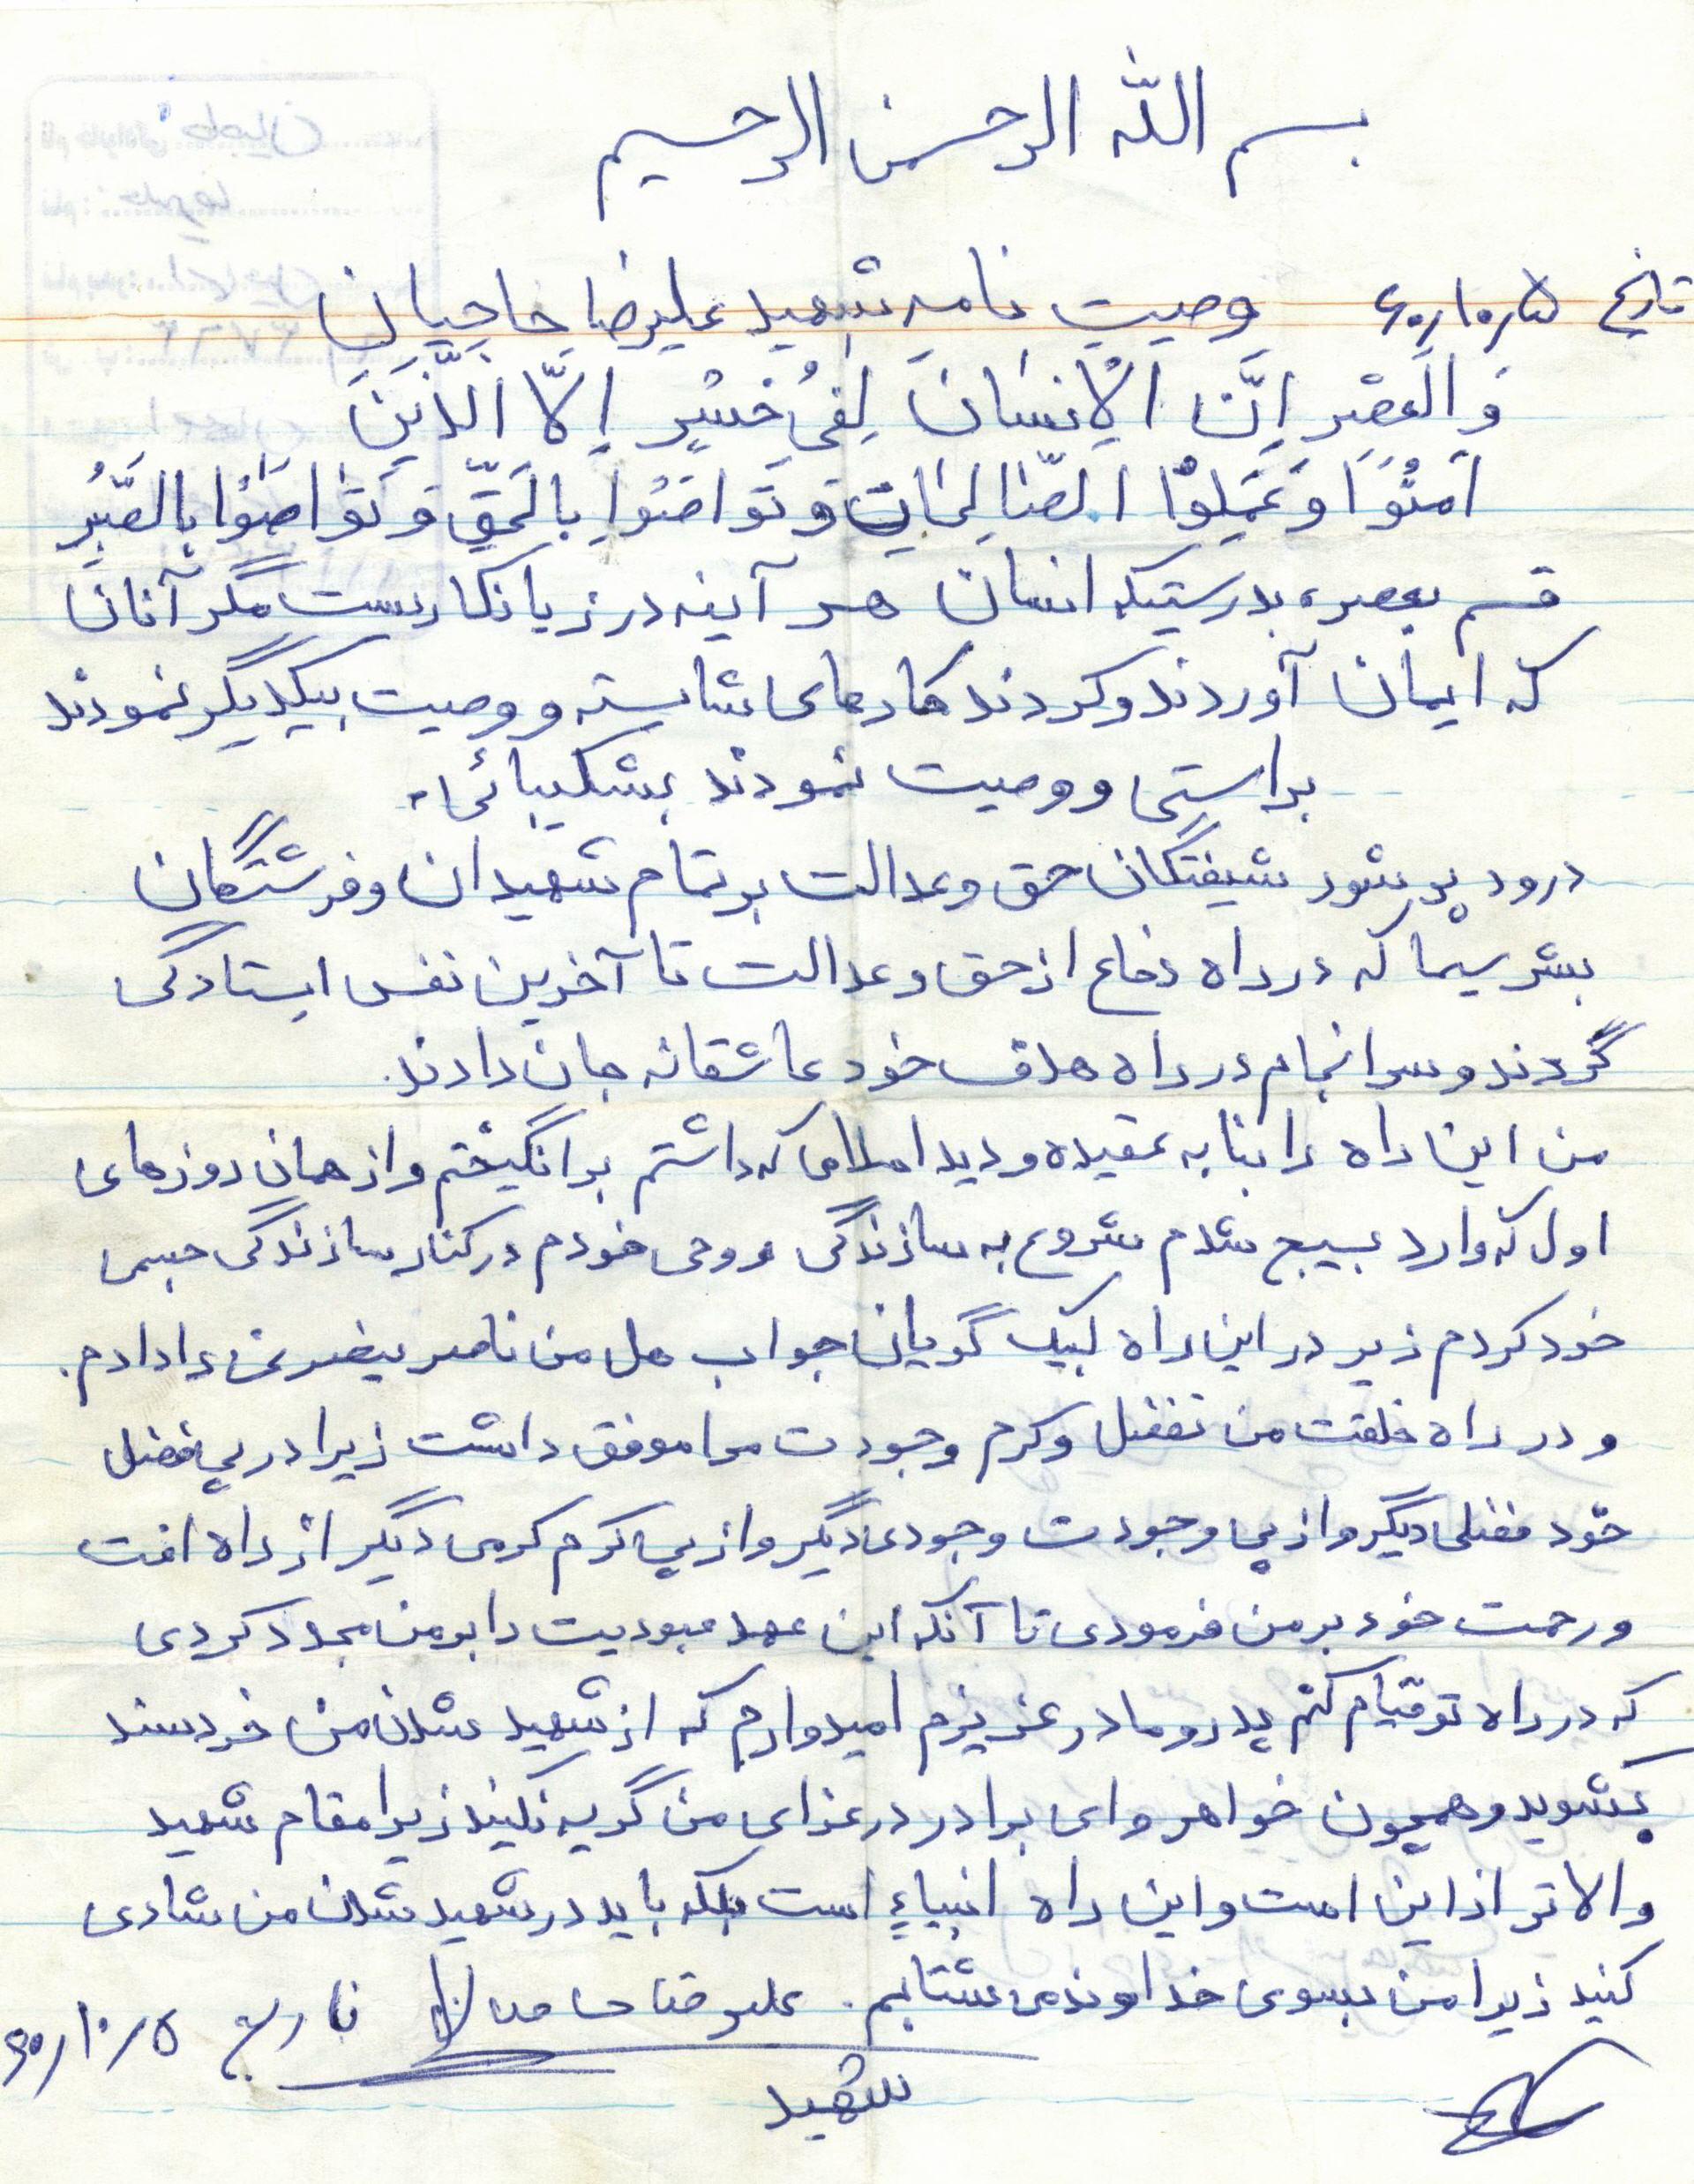 بسم الله الرحمن الرحیم
تاریخ ۶۰/۱۰/۵ وصیت نامه شهید علیرضا حاجیان
وَالعَصْرِ اِنَّ الْاِنسٰانَ لَفیٖ خُسْرٍ اِلاّ الَّذینَ
آمَنُوا وَ عَمِلوُا الصّٰالِحٰاتِ وَ تَواصَوْا بِالحَقِّ وَ تَوٰاصَوْا بِالصَّبْرِ
قسم بعصر، بدرستیکه انسان هر آینه در زیانکاریست مگر آنان
که ایمان آوردند و کردند کارهای شایسته و وصیت بیکدیگر نمودند
براستی و وصیت نمودند بشکیبائی.
درود پر شور شیفتگان حق و عدالت بر تمام شهیدان و فرشتگان
بشر سیما که در راه دفاع از حق و عدالت تا آخرین نفس ایستادگی
گردند و سرانجام در راه هدف خود عاشقانه جان دادند.
من این راه را بنا به عقیده و دید اسلامی که داشتم برانگیختم و از همان روزهای
اول که وارد بسیج شدم شروع به سازندگی روحی خودم در کنار سازندگی جسمی
خود کردم زیر در این راه لبیک گویان جواب هل من ناصر ینصرنی را دادم.
و در راه خلقت من تفضل و کرم وجودت مرا موفق داشت زیرا در پی فضل
خود فضلی دیگر و از پی وجودت وجودی دیگر و از پی کرم کرمی دیگر از راه افت
و رحمت خود بر من فرمودی تا آنکه این عهد عبودیت را بر من مجدد کردی
که در راه تو قیام کنم پدر و مادر عزیزم امیدوارم که از شهید شدن من خردسند
بشوید و همچون خواهر و ای برادر در عزای من گریه نکنید زیرا مقام شهید
والاتر از این است و این راه انبیاء است بلکه باید در شهید شدن من شادی
کنید زیرا من بسوی خداوند می شتابم. علیرضا حاجیان تاریخ ۶۰/۱۰/۵
شهید